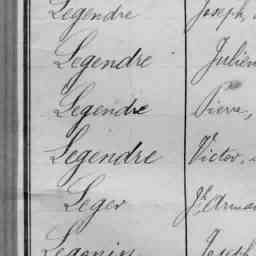 Legendre Joseph,
Legendre Julien
Legendre Pierre,
Legendre Victor,
Leger
Joseph